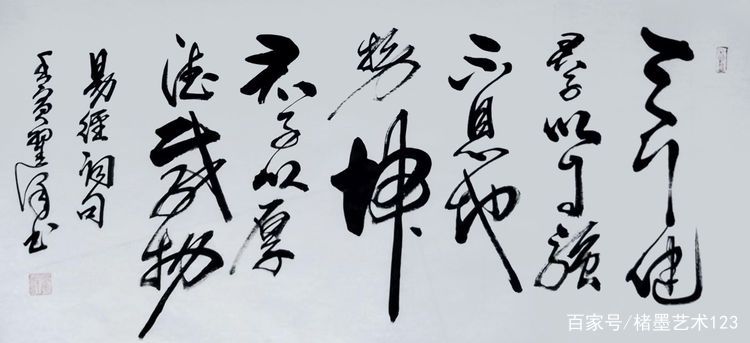 天行健
君子以自強
不息地
势坤
君子以厚
德载物
易經詞句
书
百家号/楮墨艺术123